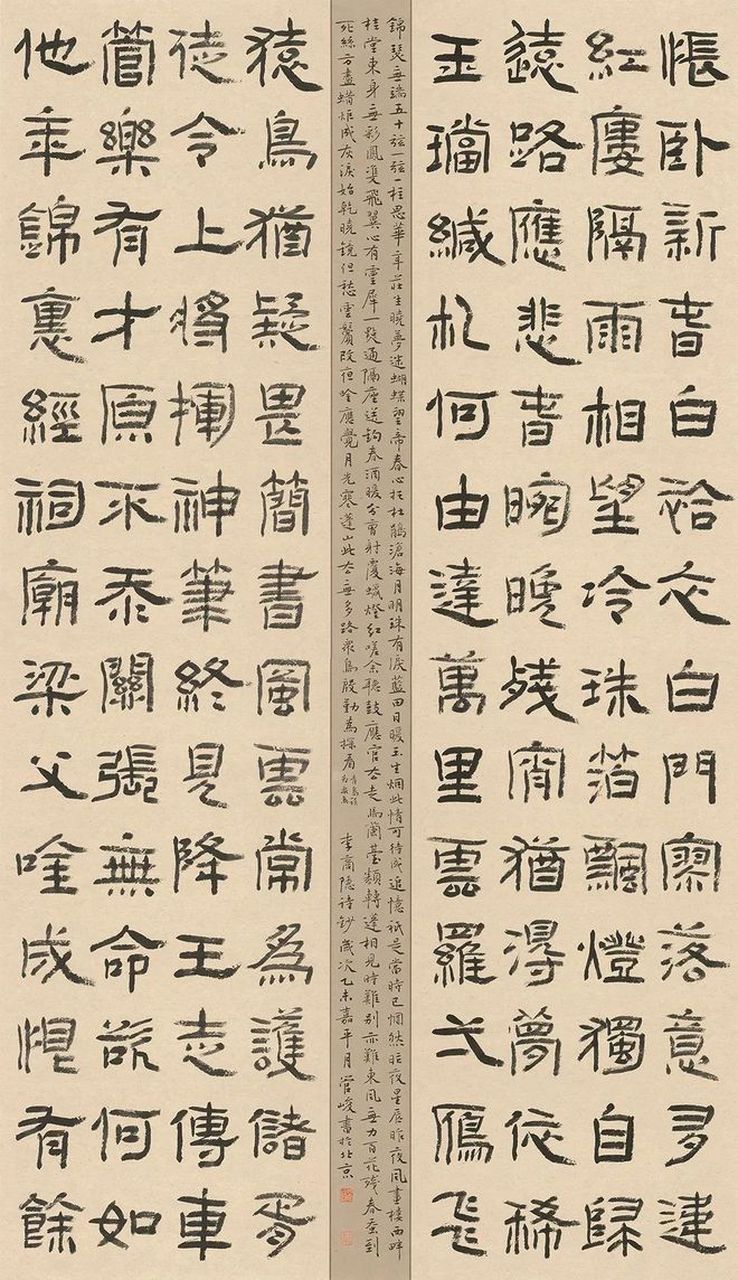 悵臥新春白袷衣白門寥落意多違
紅廔隔雨相望冷珠箔飄燈獨自歸
遠路應悲春晼晚殘宵猶得夢依稀
玉璫緘札何由達萬里雲羅弌鴈飛
錦瑟無端五十弦一弦一柱思華年莊生曉夢迷蝴蝶望帝春心托杜鵑滄海月明珠有淚藍田日暖玉生烟此情可待成追憶祇是當時已惘然昨夜星辰昨夜風畫樓西畔
桂堂東身無彩鳳雙飛翼心有靈犀一點通隔座送鈎春酒暖分曹射覆蠟燈紅嗟余聽鼓應官去走馬蘭臺類轉蓬相見時難別亦難東風無力百花殘春蠶到
死絲方盡蠟炬成灰淚始乾曉鏡但愁雲鬢改夜吟應覺月光寒蓬山此去無多路衆鳥殷勤爲探看 青鳥誤爲衆鳥 李商隱詩鈔歲次乙未嘉平月管峻書於北京
猿鳥猶疑畏簡書風雲常爲護儲胥
徒令上將揮神筆終見降王走傳車
管樂有才原不忝關張無命欲何如
他年錦裏經祠廟梁父吟成恨有餘